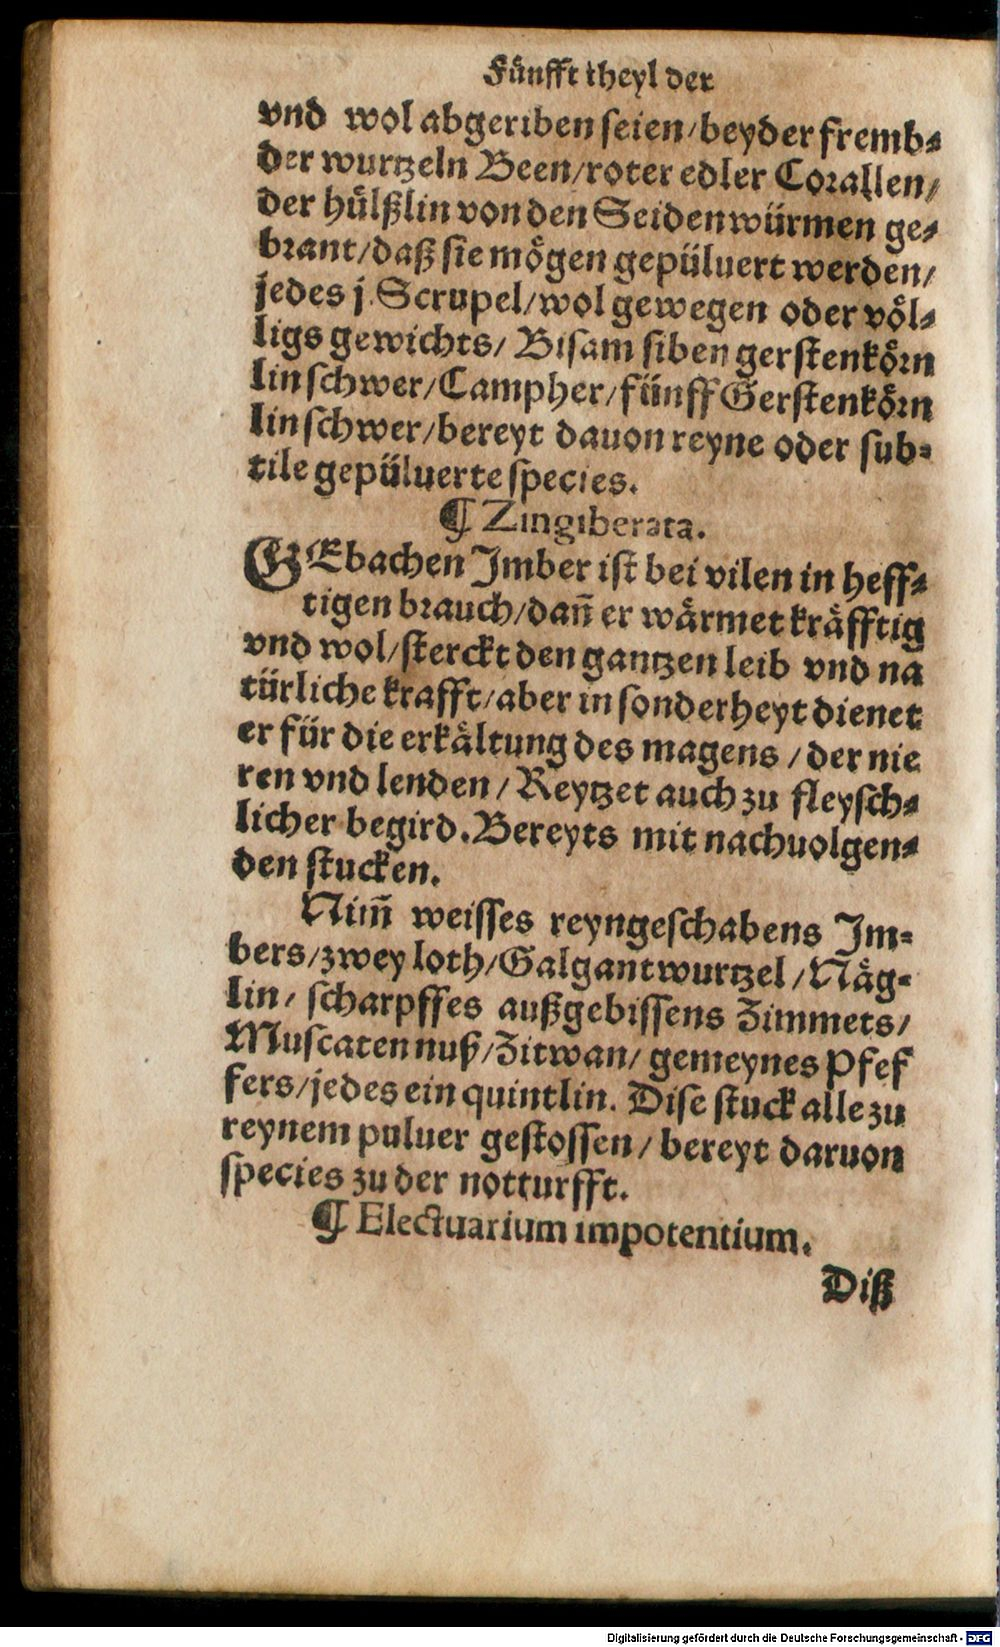 Fünfft theyl der
vnd wol abgeriben seien/beyder fremb⸗
der wurtzeln Been/roter edler Corallen/
der hülßlin von den Seidenwürmen ge⸗
brant/daß sie mögen gepüluert werden/
jedes j. Scrupel/wol gewegen oder völ⸗
ligs gewichts/ Bisam siben gerstenkörn
lin schwer/Campher/fünff Gerstenkörn
lin schwer/bereyt dauon reyne oder sub⸗
tile gepüluerte species.
¶ Zingiberata.
GEbachen Imber ist bei vilen in heff⸗
tigen brauch/dañ er wärmet kräfftig
vnd wol/sterckt den gantzen leib vnd na
türliche krafft/aber in sonderheyt dienet
er für die erkältung des magens /der nie
ren vnd lenden/ Reytzet auch zu fleysch⸗
licher begird. Bereyts mit nachuolgen⸗
den stucken.
Nim̃ weisses reyngeschabens Im⸗
bers/zwey loth/Galgantwurtzel/Näg⸗
lin/ scharpffes außgebissens Zimmets/
Muscatennuß/Zitwan/ gemeynes Pfef
fers/jedes ein quintlin. Dise stuck alle zu
reynem puluer gestossen/ bereyt daruon
species zu der notturfft.
¶ Electuarium impotentium.
Diß
Digitalisierung gefördert durch die Deutsche Forschungsgemeinschaft - DFG